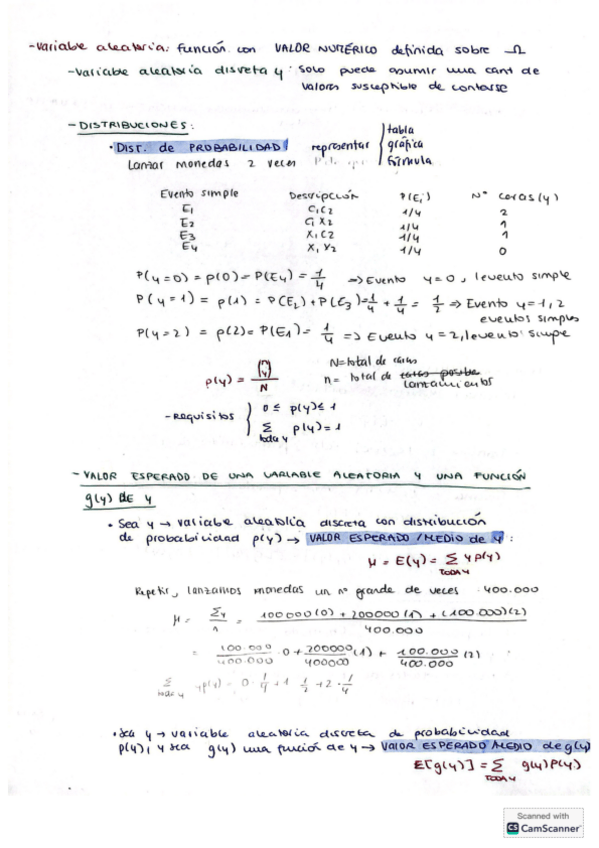 -Variable aleatoria: función con VALOR NUMÉRICO definida sobre Ω
-Variable aleatoria discreta y: solo puede asumir una cant de
valores susceptible de contarse
-DISTRIBUCIONES:
• Dist. de PROBABILIDAD representar { tabla
gráfica
fórmula
Lanzar monedas 2 veces
Evento simple Descripción P(Ei) Nº caras (y)
E1 C1C2 1/4 2
E2 C1X2 1/4 1
E3 X1C2 1/4 1
E4 X1X2 1/4 0
P(y=0) = p(0) = P(E4) = 1/4 ⇒ Evento y=0, 1 evento simple
P(y=1) = p(1) = P(E2) + P(E3) = 1/4 + 1/4 = 1/2 ⇒ Evento y=1, 2
eventos simples
P(y=2) = p(2) = P(E1) = 1/4 ⇒ Evento y=2, 1 evento simple
p(y) = (n y) / N
N = total de casos
n = total de lanzamientos
-Requisitos { 0 ≤ p(y) ≤ 1
Σ toda y p(y) = 1
- VALOR ESPERADO DE UNA VARIABLE ALEATORIA Y UNA FUNCIÓN
g(y) DE y
• Sea y → variable aleatoria discreta con distribución
de probabilidad p(y) → VALOR ESPERADO/MEDIO de y:
μ = E(y) = Σ TODA y y p(y)
Repetir, lanzamos monedas un nº grande de veces 400.000
μ = Σy / n = 100000(0) + 200000(1) + (100.000)(2) / 400.000
= 100.000/400.000 · 0 + 200000/400000 (1) + 100.000/400.000 (2)
Σ toda y yp(y) = 0 · 1/4 + 1 1/2 + 2 · 1/4
• Sea y → variable aleatoria discreta de probabilidad
p(y), y sea g(y) una función de y → VALOR ESPERADO/MEDIO de g(y)
E[g(y)] = Σ TODA y g(y) P(y)
Scanned with
CS CamScanner